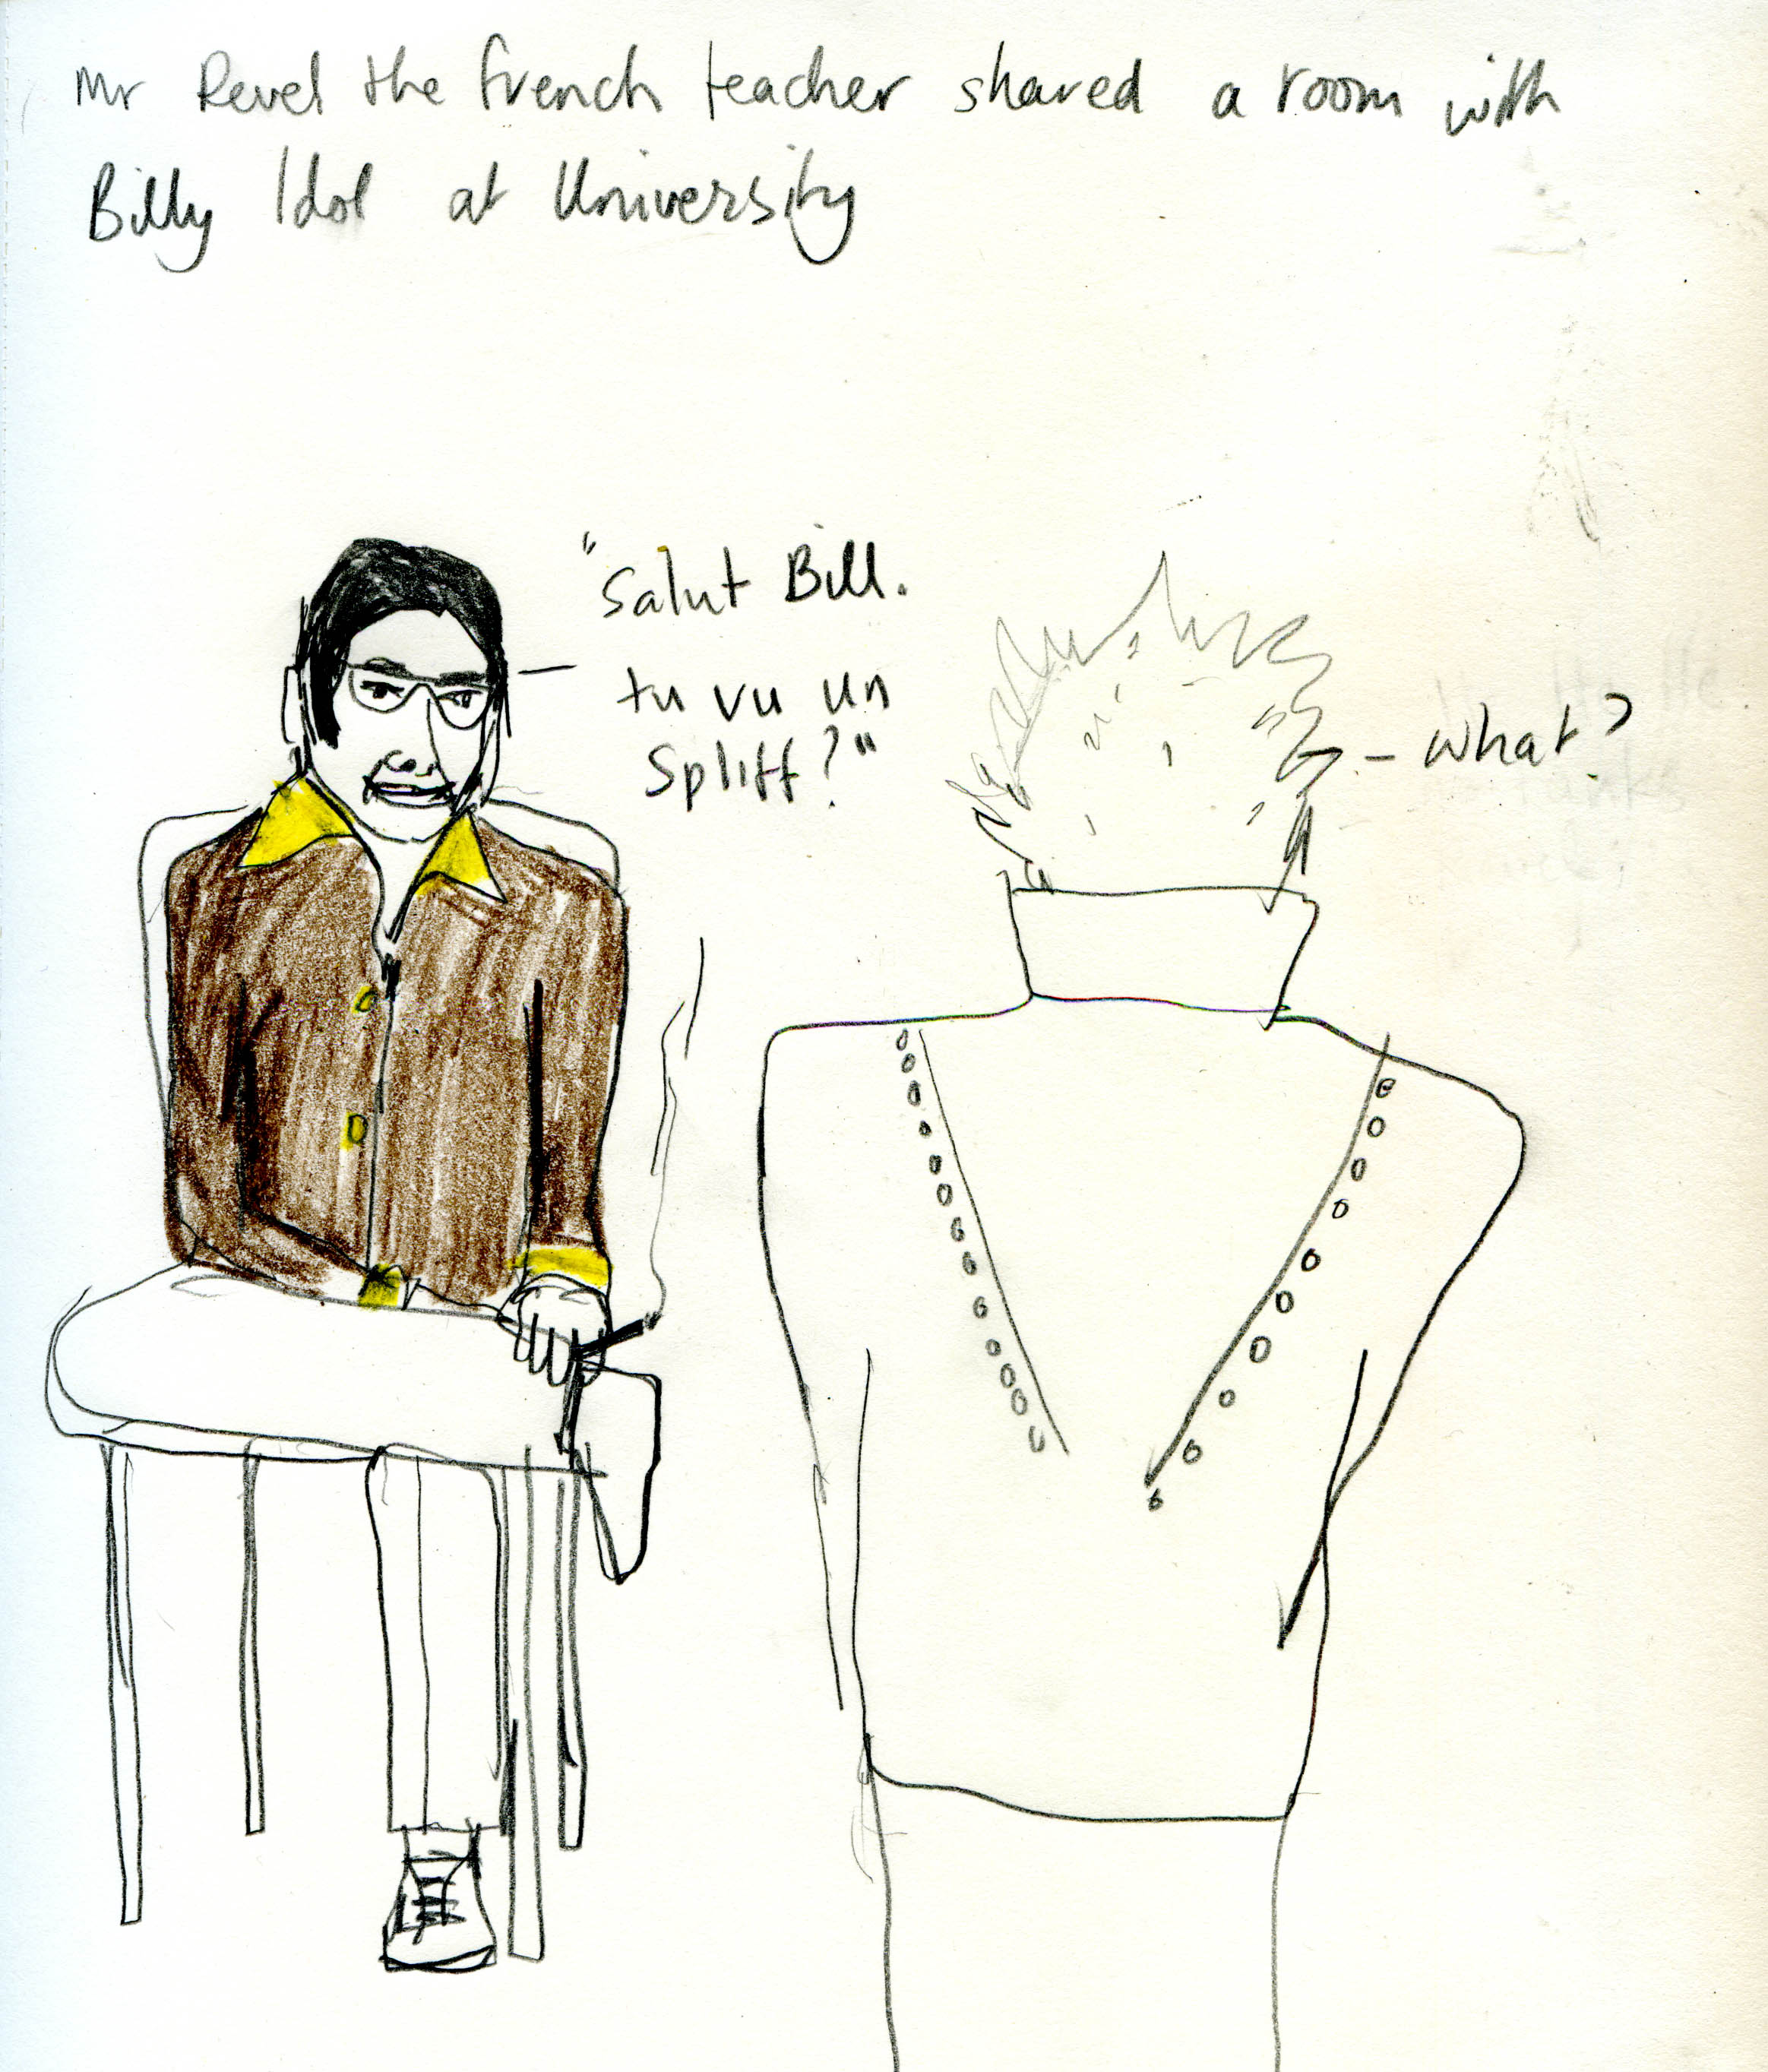 Mr Revel the french teacher shared a room with
Billy Idol at University
"Salut Bill.
tu vu un
Spliff?"
- what?